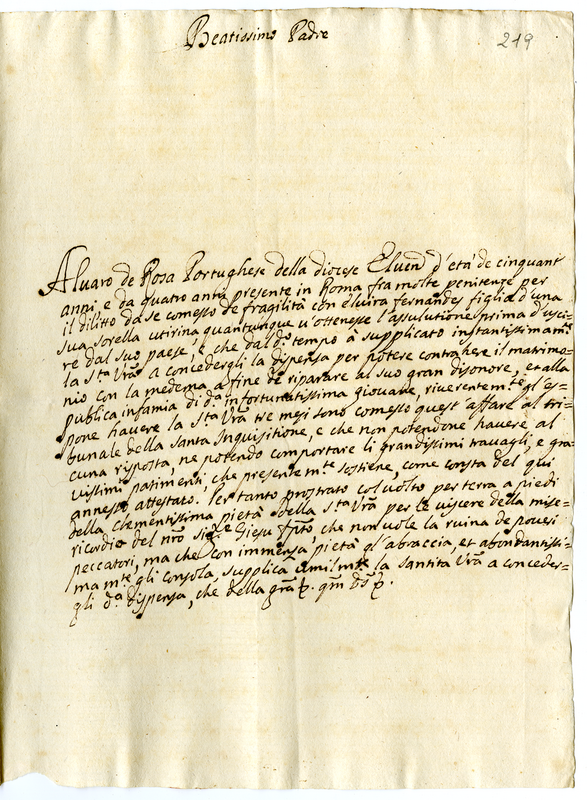 Beatissimo Padre
219
Aluaro de Rosa Portughese della diocese Eluen d'età de cinquant
anni e da quatro anni presente in Roma fra molte penitenze per
il dilitto da se comesso de fragilità con eluira fernandes figlia d'una
sua sorella utirina quantunque u'ottenesse l'assulutione prima d'usci-
re dal suo paese, e che dal do. tempo à supplicato instantissimamte.
la Sta. Vrã a concedergli la dispensa per potere contrahere il matrimo-
nio con la medema a fine de riparare al suo gran disonore, et alla
publica infamia di da. infortunatissima giouane, riverentemte. gl'es-
pone hauere la Sta. Vrã tre mesi sono comesso quest'affare al tri-
bunale della Santa Inquisitione, e che non potendone hauere al
cuna risposta, ne potendo comportare li grandissimi trauagli, e gra-
uissimi patimenti che presentemte. sostiene, come consta del qui
annesso attestato. Per tanto prostrato col uolto per terra a piedi
della clementissima pietà della Sta. Vrã per le viscere della mise-
ricordia del nrõ Sigre. Giesu che non uole la ruina de poueri
peccatori, ma che con immensa pietà gl'abraccia, et abondantissi-
mamte. gli consola, supplica umilmte. la Santita Vrã a conceder-
gli da. dispensa, che della grã